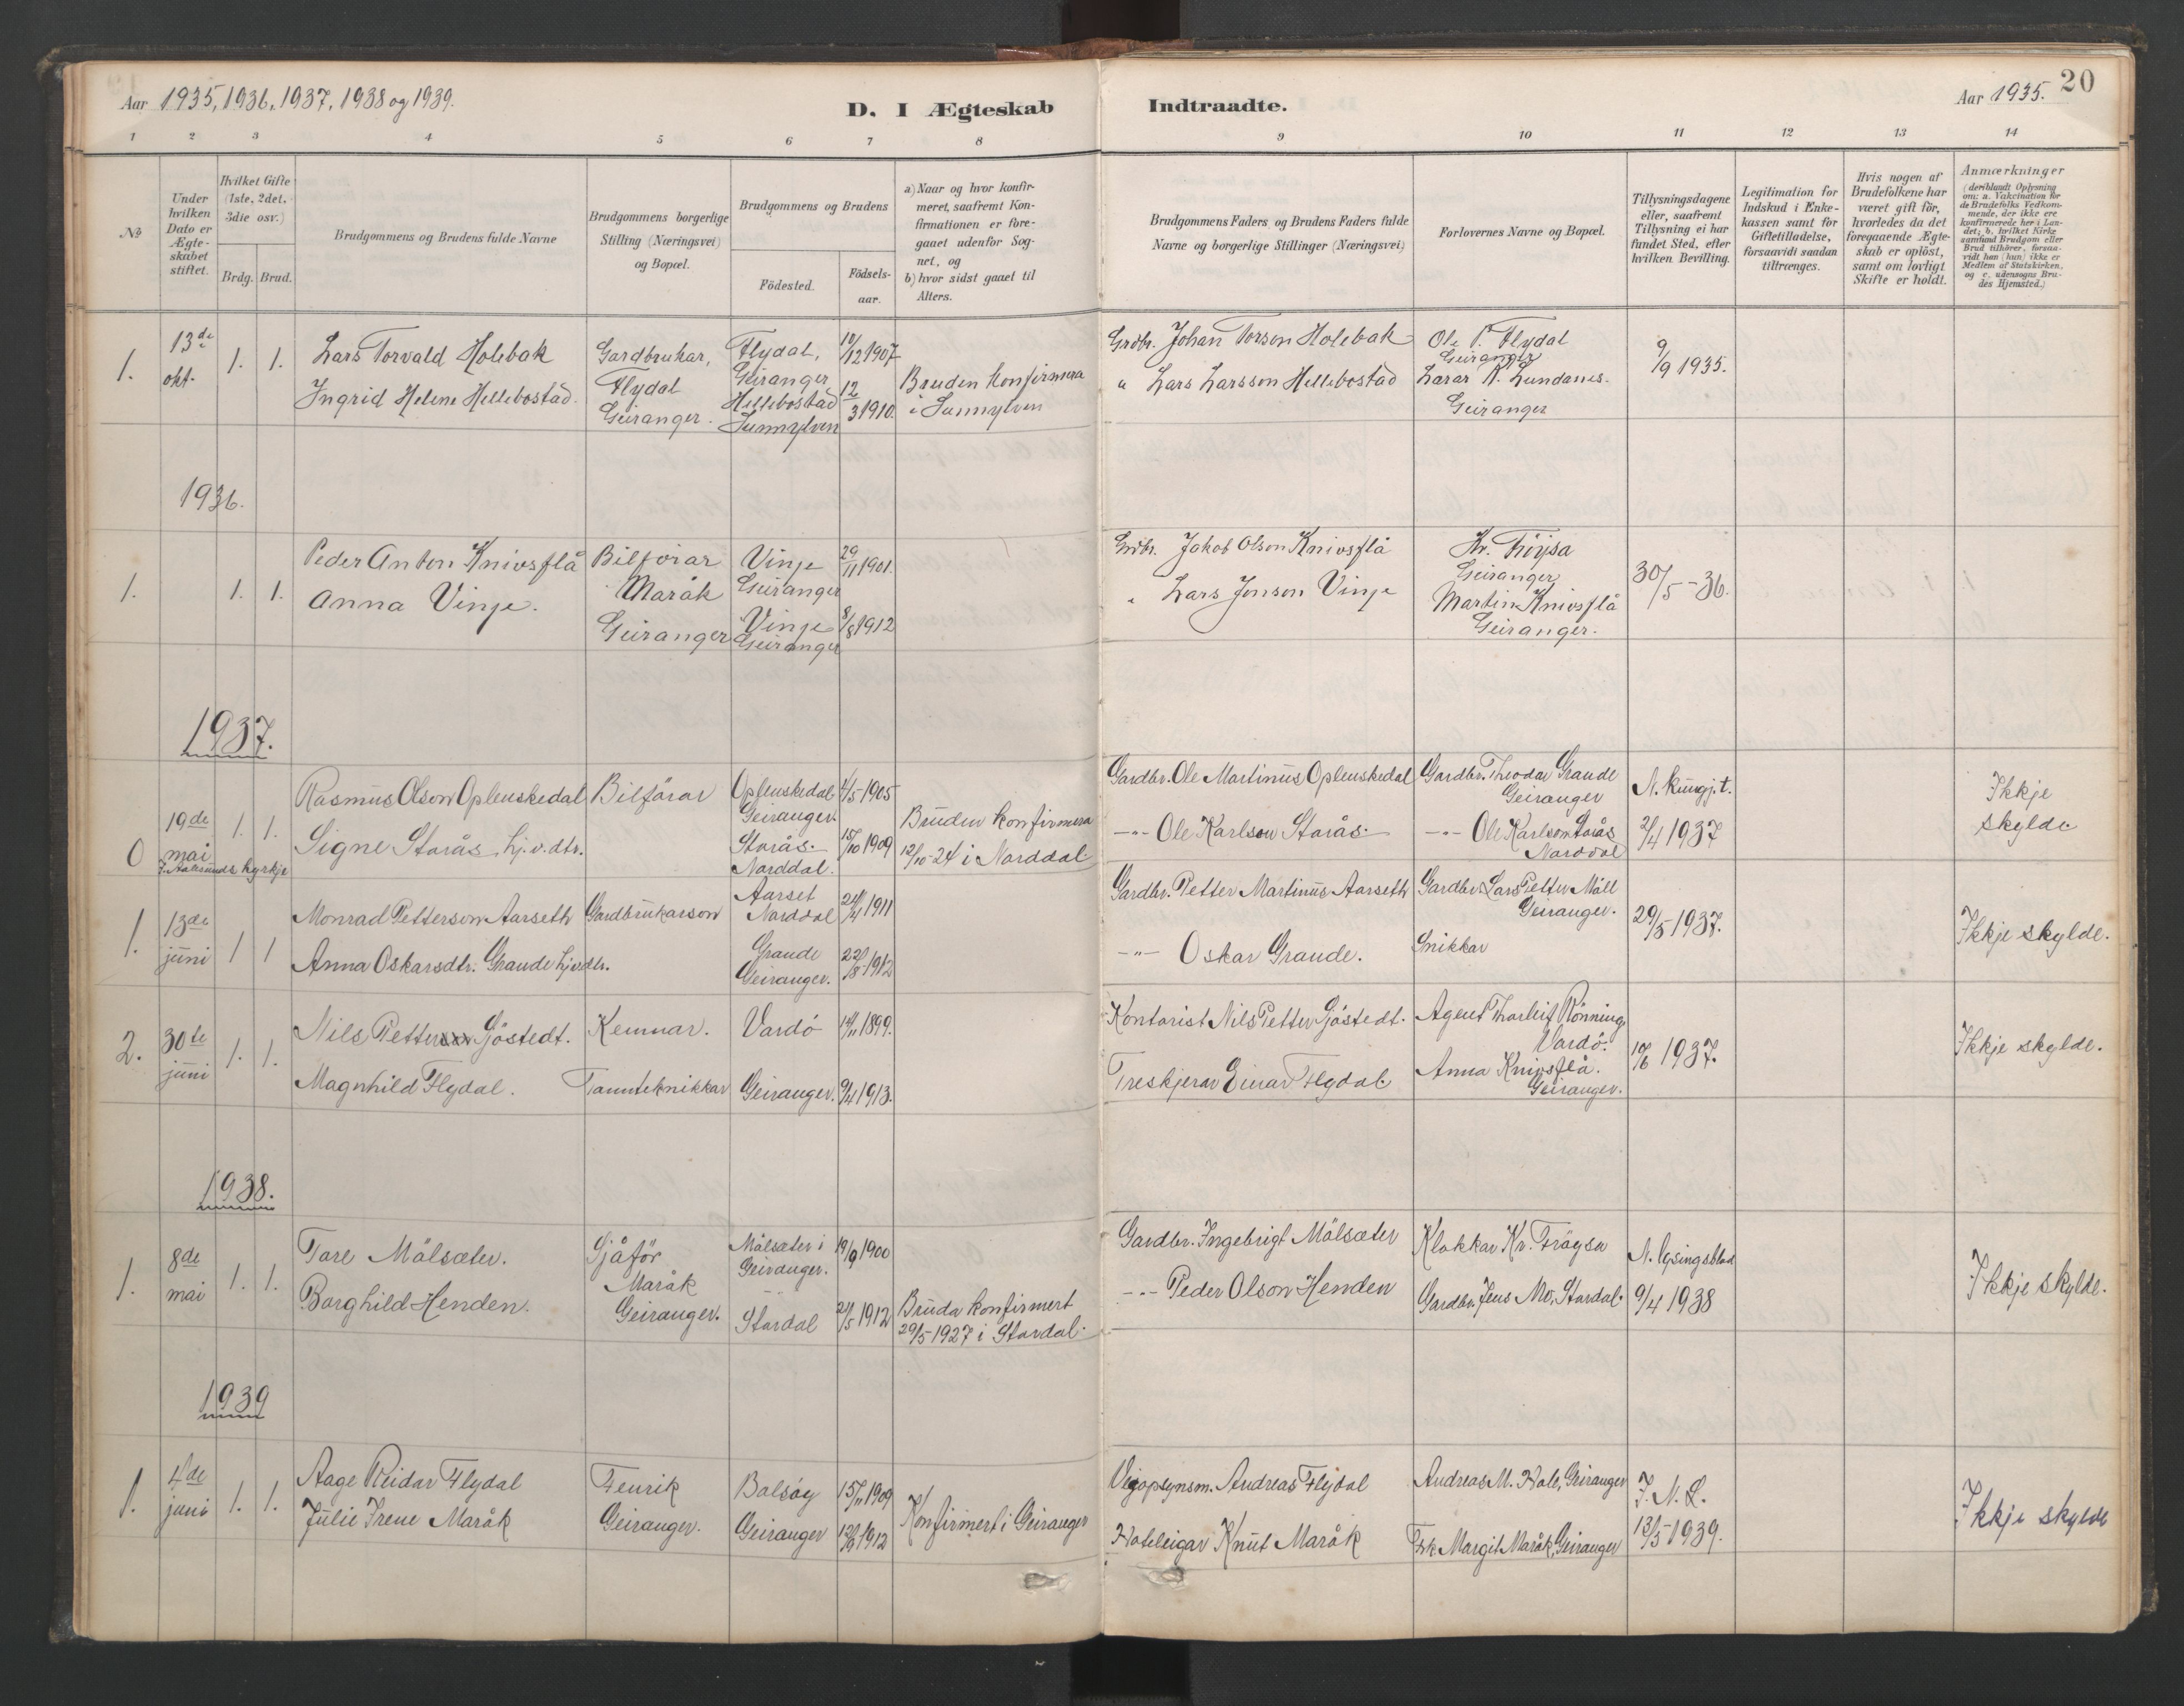 Aar 1935, 1936, 1937, 1938 og 1939.
D. I Ægteskab Indtraadte.
Aar 1935. 20
1 2 3 4 5 6 7 8 9 10 11 12 13 14
No
Under hvilken Dato er Ægte-skabet stiftet.
Hvilket Gifte (1ste, 2det, 3die osv.)
Brdg. Brud.
Brudgommens og Brudens fulde Navne
Brudgommens borgerlige Stilling (Næringsvei) og Bopæl.
Brudgommens og Brudens
Födested.
Födsels-aar.
a) Naar og hvor konfir-meret, saafremt Kon-firmationen er fore-gaaet udenfor Sog-net, og
b) hvor sidst gaaet til Alters.
Brudgommens Faders og Brudens Faders fulde Navne og borgerlige Stillinger (Næringsvei)
Forlovernes Navne og Bopæl.
Tillysningsdagene eller, saafremt Tillysning ei har fundet Sted, efter hvilken Bevilling.
Legitimation for Indskud i Enke-kassen samt for Giftetilladelse, forsaavidt saadan tiltrænges.
Hvis nogen af Brudefolkene har været gift för, hvorledes da det foregaaende Ægte-skab er oplöst, samt om lovligt Skifte er holdt.
Anmærkninger
(deriblandt Oplysning om: a. Vakcination for de Brudefolks Vedkom-mende, der ikke ere konfirmerede her i Lan-det; b. hvilket Kirke samfund Brudgom eller Brud tilhörer, forsaa-vidt han (hun) ikke er Medlem af Statskirken, og c. udensogns Bru-des Hjemsted.)
1. 13de okt. 1. 1.
Lars Torvald Holebak
Ingrid Helene Hellebostad.
Gardbrukar, Flydal Geiranger.
Flydal, Geiranger 10/12 1907
Hellebostad Sunnylven 12/3 1910.
Bruden konfirmera i Sunnylven
Grdbr. Johan Torson Holebak
" Lars Larsson Hellebostad
Ole P. Flydal Geiranger
Larar K. Lundanes. Geiranger
9/9 1935.
1936.
1. 1. 1.
Peder Anton Knivsflå
Anna Vinje.
Bilförar Maråk Geiranger
Vinje Geiranger 29/11 1901.
Vinje Geiranger 8/8 1912
Grdbr. Jakob Olson Knivsflå
" Lars Jonson Vinje
Kr. Fröysa Geiranger
Martin Knivsflå Geiranger.
30/5-36.
1937.
0 19de mai 1. 1.
I Aalesunds kyrkje
Rasmus Olson Oplenskedal
Signe Storås hj.v.dtr.
Bilförar
Oplenskedal Geiranger. 4/5 1905
Storås. Norddal. 15/10 1909
Bruden konfirmera 12/10-24 i Norddal.
Gardbr. Ole Martinus Oplenskedal
-"- Ole Karlson Storås.
Gardbr. Theodor Grande Geiranger
-"- Ole Karlson Storås Norddal
N. kungj.t. 2/4 1937
Ikkje skylde
1. 13de juni 1 1
Monrad Petterson Aarseth
Anna Oskarsdtr. Grande hj.v.dtr.
Gardbrukarson
Aarset Norddal 24/4 1911
Grande Geiranger. 22/8 1912
Gardbr. Petter Martinus Aarseth
-"- Oskar Grande.
Gardbr. Lars Petter Möll Geiranger.
Snikkar
29/5 1937.
Ikkje skylde.
2. 30te juni 1. 1.
Nils Petter Sjöstedt.
Magnhild Flydal.
Kemnar.
Tannteknikkar
Vardö 14/11 1899.
Geiranger. 9/4 1913.
Kontorist Nils Petter Sjöstedt.
Treskjerar Einar Flydal.
Agent Thorleif Rönning, Vardö.
Anna Knivsflå. Geiranger.
10/6 1937.
Ikkje skylde.
1938.
1. 8de mai 1. 1.
Tore Mölsæter.
Borghild Henden.
Sjåför Maråk Geiranger.
Mölsæter i Geiranger. 19/9 1900
Stordal 21/5 1912
Bruda konfirmert 29/5 1927 i Stordal.
Gardbr. Ingebrigt Mölsæter
-"- Peder Olson Henden
Klokkar Kr. Fröysa
Gardbr. Jens Mo, Stordal.
N. lysingsblad 9/4 1938
Ikkje skylde.
1939
1. 4de juni 1. 1.
Aage Reidar Flydal
Julie Irene Maråk
Fenrik Geiranger.
Bolsöy 15/11 1909
Geiranger 1912
Konfirmert i Geiranger
Vegopsynsm. Andreas Flydal
Hoteleigar Knut Maråk
Andreas M. Hole, Geiranger
Frk. Margit Maråk, Geiranger
I. N. L. 13/5 1939.
Ikkje skylde